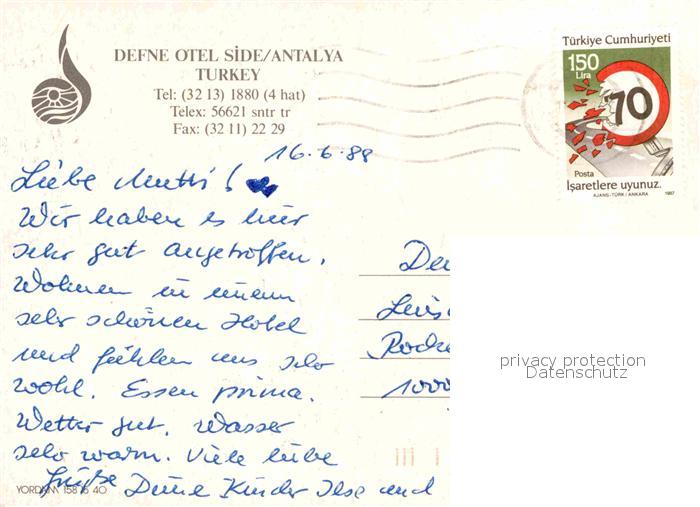 DEFNE OTEL SİDE/ANTALYA
TURKEY
Tel: (32 13) 1880 (4 hat)
Telex: 56621 sntr tr
Fax: (32 11) 22 29
Türkiye Cumhuriyeti
150
Lira
70
Posta
İşaretlere uyunuz.
AJANS-TÜRK / ANKARA 1987
16.6.88
Liebe Mutti!
Wir haben es hier
sehr gut angetroffen.
Wohnen in einem
sehr schönen Hotel
und fühlen uns sehr
wohl. Essen prima.
Wetter gut, Wasser
sehr warm. Viele liebe
Grüße Deine Kinder Ilse und
1000
privacy protection
Datenschutz